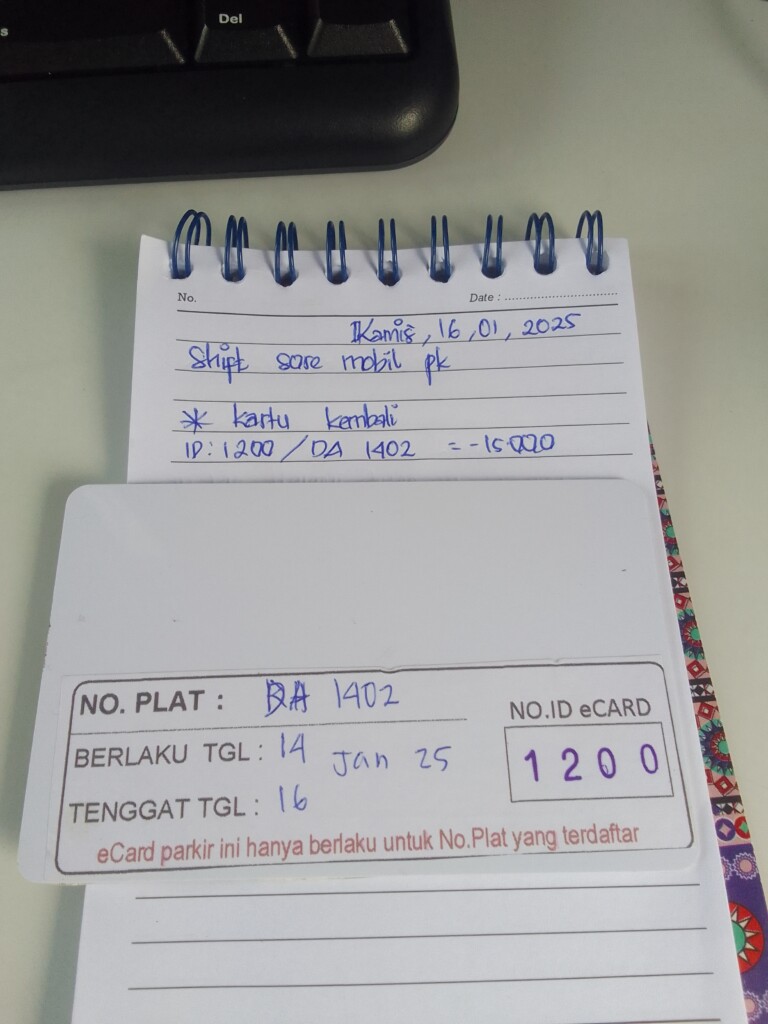 Del
No.
Date :
Kamis, 16, 01, 2025
Shift sore mobil pk
* kartu kembali
ID: 1200 / DA 1402 = -15.000
NO. PLAT : DA 1402
BERLAKU TGL : 14 Jan 25
TENGGAT TGL : 16
NO.ID eCARD
1200
eCard parkir ini hanya berlaku untuk No.Plat yang terdaftar